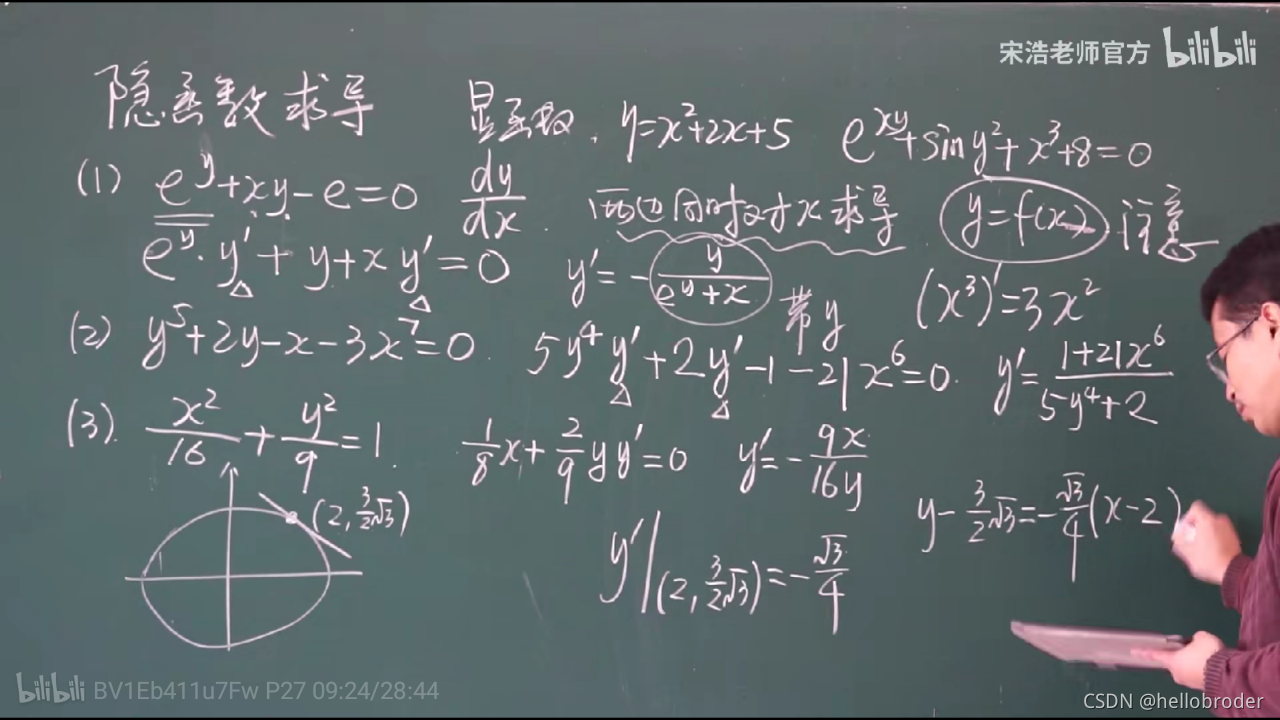 宋浩老师官方 bilibili
隐函数求导 显函数. y=x²+2x+5 e^{xy}+sin y²+x³+8=0
(1) e^y+xy-e=0 dy/dx 两边同时对x求导 y=f(x) 注意
e^y·y'+y+xy'=0 y'=-y/(e^y+x) 带y (x³)'=3x²
(2) y⁵+2y-x-3x⁷=0. 5y⁴y'+2y'-1-21x⁶=0. y'=(1+21x⁶)/(5y⁴+2)
(3). x²/16+y²/9=1. 1/8x+2/9yy'=0 y'=-9x/16y
(2,3/2√3) y-3/2√3=-√3/4(x-2)
y'|(2,3/2√3)=-√3/4
bilibili BV1Eb411u7Fw P27 09:24/28:44
CSDN @hellobroder